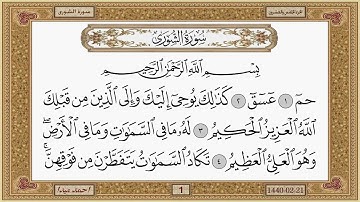 سورة الشورى
الجزء الخامس والعشرين
سُورَةُ الشُّورَىٰ
بِسْمِ اللَّهِ الرَّحْمَٰنِ الرَّحِيمِ
حمٓ ١ عٓسٓقٓ ٢ كَذَٰلِكَ يُوحِىٓ إِلَيْكَ وَإِلَى الَّذِينَ مِن قَبْلِكَ
اللَّهُ الْعَزِيزُ الْحَكِيمُ ٣ لَهُۥ مَا فِى السَّمَٰوَٰتِ وَمَا فِى الْأَرْضِ ۖ
وَهُوَ الْعَلِىُّ الْعَظِيمُ ٤ تَكَادُ السَّمَٰوَٰتُ يَتَفَطَّرْنَ مِن فَوْقِهِنَّ ۚ
1440-02-21
1